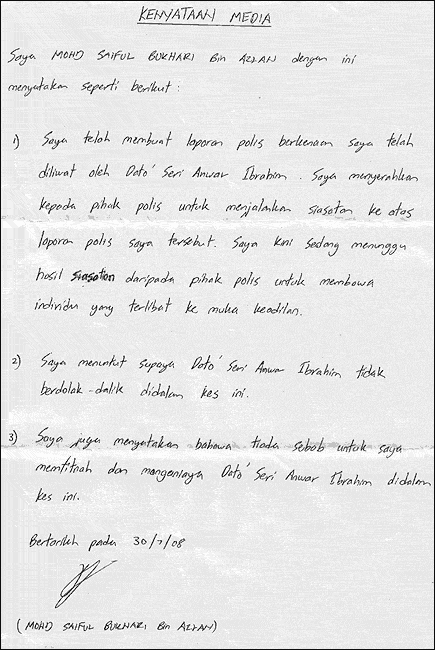 KENYATAAN MEDIA
Saya MOHD SAIFUL BUKHARI Bin AZLAN dengan ini
menyatakan seperti berikut :
1) Saya telah membuat laporan polis berkenaan saya telah
diliwat oleh Dato' Seri Anwar Ibrahim. Saya menyerahkan
kepada pihak polis untuk menjalankan siasatan ke atas
laporan polis saya tersebut. Saya kini sedang menunggu
hasil siasatan daripada pihak polis untuk membawa
individu yang terlibat ke muka keadilan.
2) Saya menuntut supaya Dato' Seri Anwar Ibrahim tidak
berdolak-dalik didalam kes ini.
3) Saya juga menyatakan bahawa tiada sebab untuk saya
memfitnah dan menganiaya Dato' Seri Anwar Ibrahim didalam
kes ini.
Bertarikh pada 30/7/08
(MOHD SAIFUL BUKHARI Bin AZLAN)